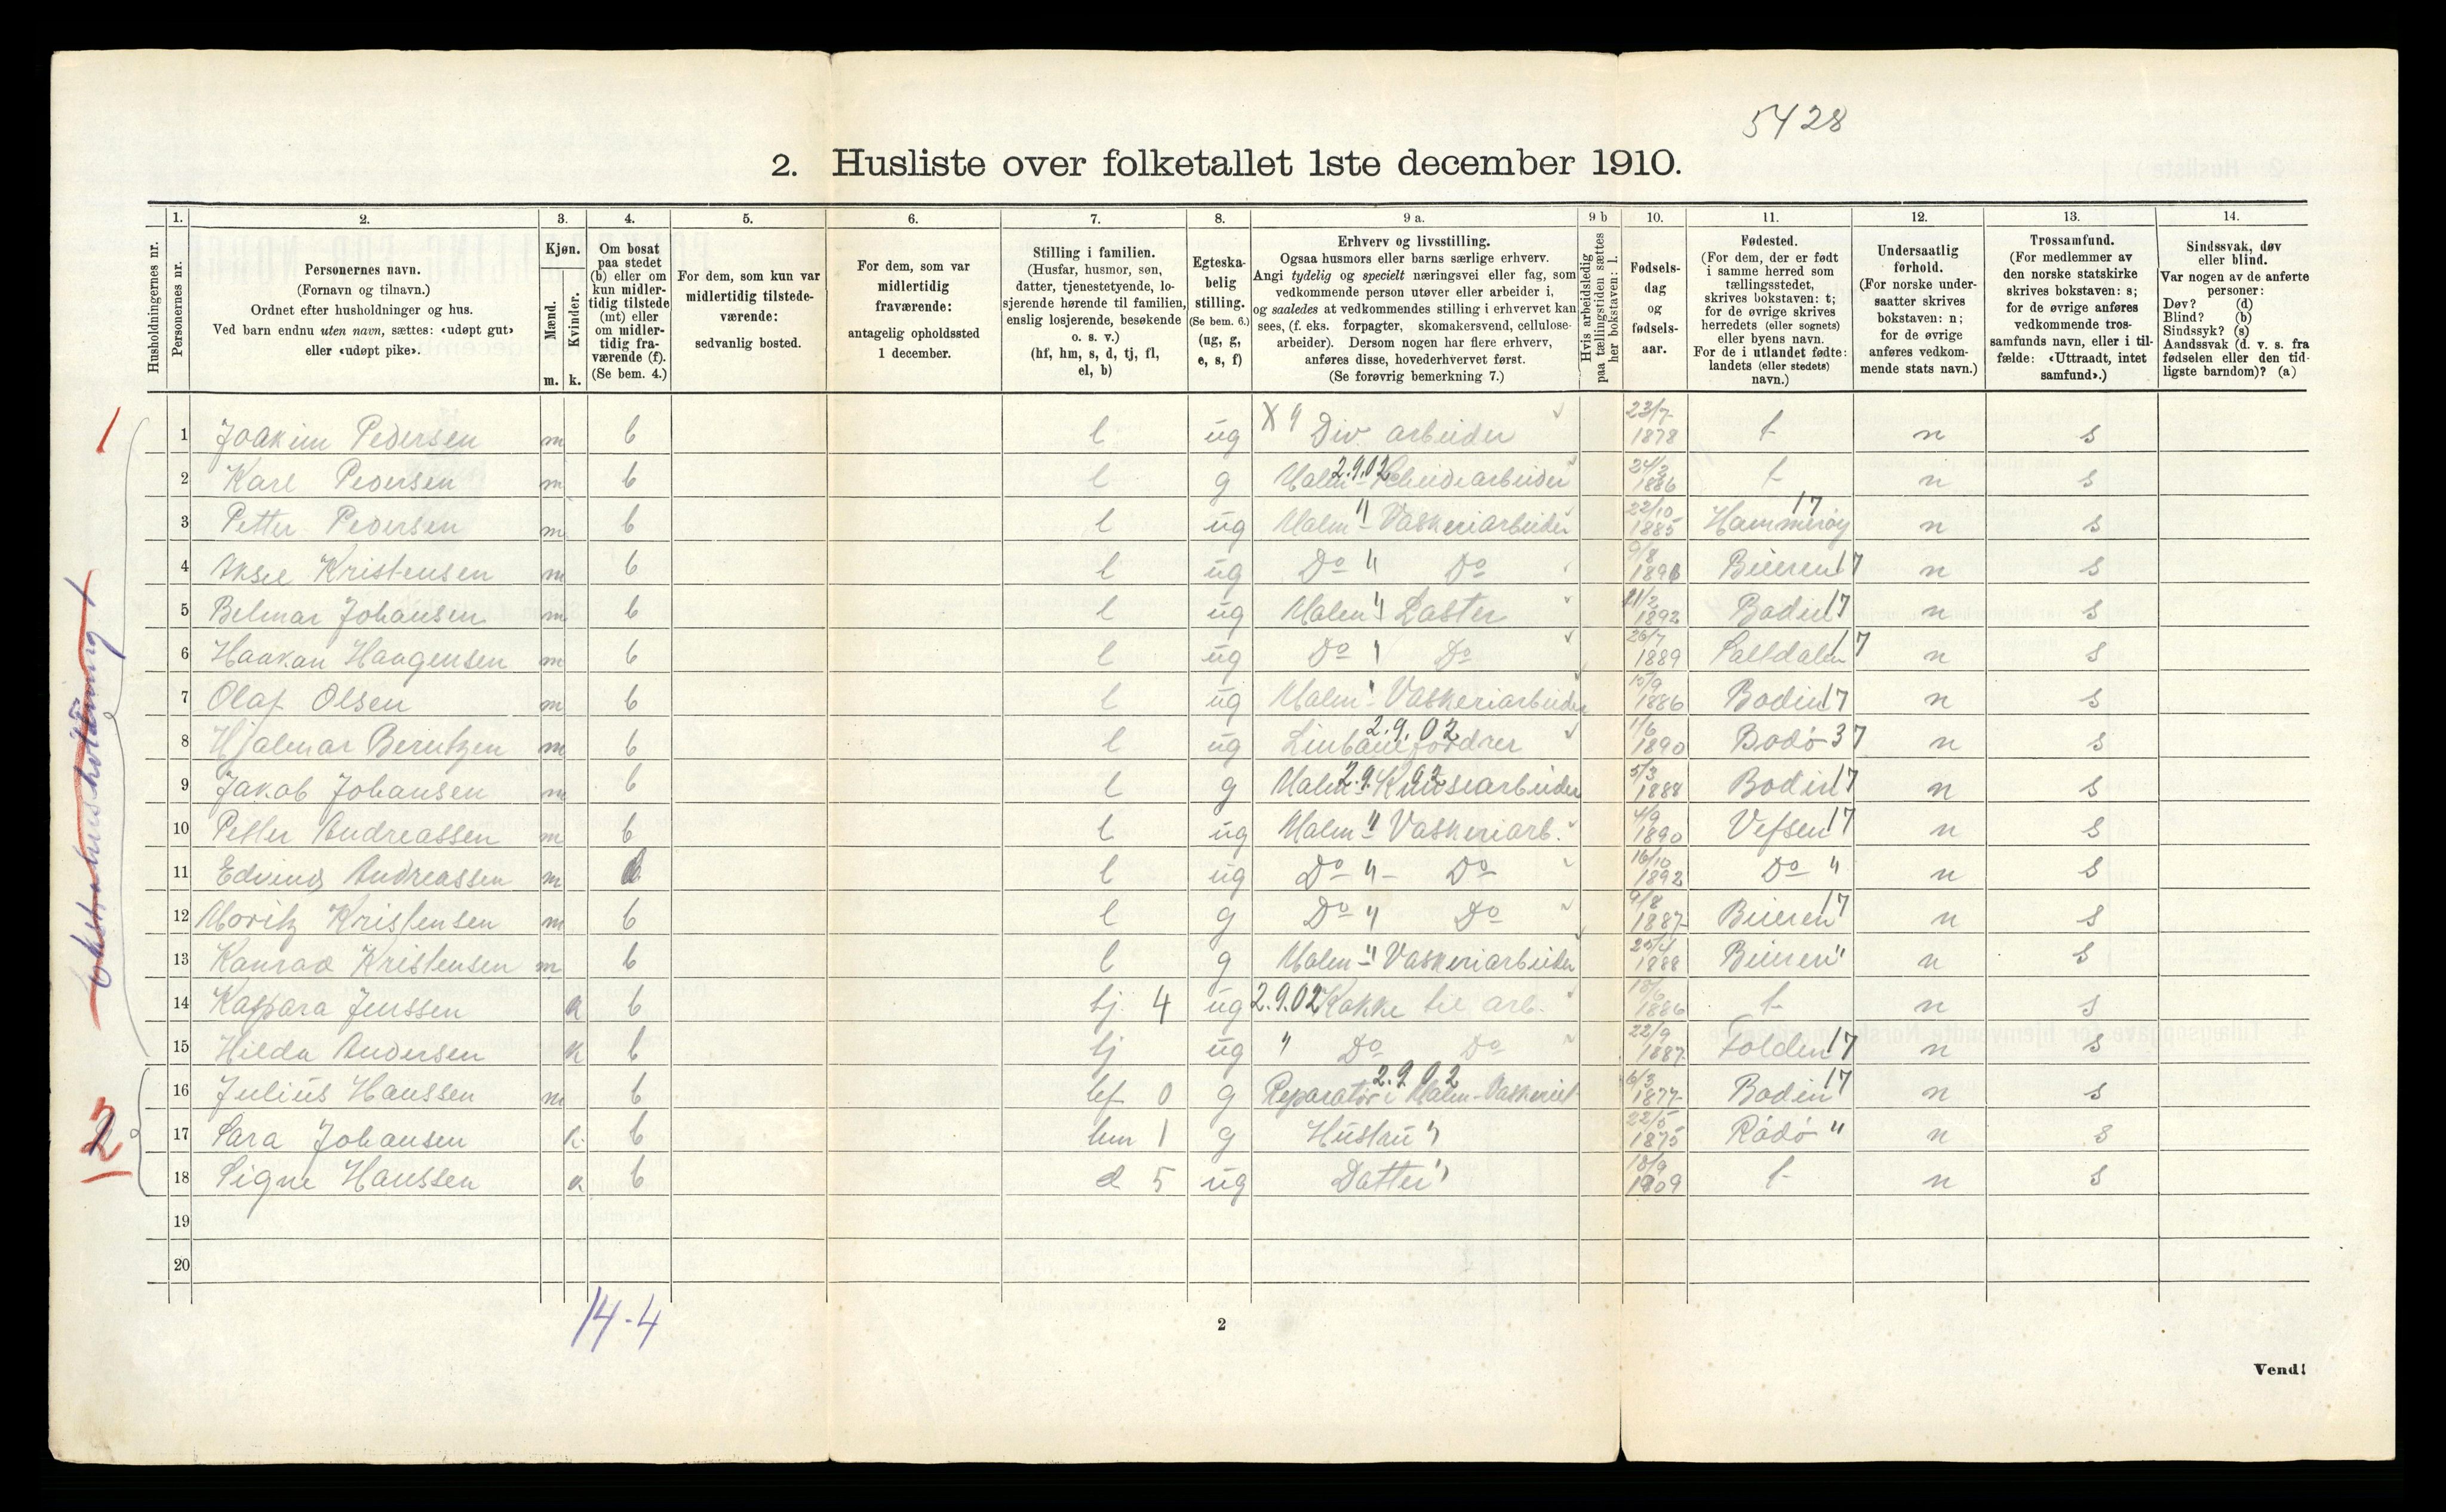 5428
2. Husliste over folketallet 1ste december 1910.
Husholdningernes nr.
1. Personernes nr.
2. Personernes navn. (Fornavn og tilnavn.) Ordnet efter husholdninger og hus. Ved barn endnu uten navn, sættes: «udøpt gut» eller «udøpt pike».
3. Kjøn. Mænd. m. Kvinder. k.
4. Om bosat paa stedet (b) eller om kun midlertidig tilstede (mt) eller om midlertidig fraværende (f). (Se bem. 4.)
5. For dem, som kun var midlertidig tilstedeværende: sedvanlig bosted.
6. For dem, som var midlertidig fraværende: antagelig opholdssted 1 december.
7. Stilling i familien. (Husfar, husmor, søn, datter, tjenestetyende, losjerende hørende til familien, enslig losjerende, besøkende o. s. v.) (hf, hm, s, d, tj, fl, el, b)
8. Egteskabelig stilling. (Se bem. 6.) (ug, g, e, s, f)
9 a. Erhverv og livsstilling. Ogsaa husmors eller barns særlige erhverv. Angi tydelig og specielt næringsvei eller fag, som vedkommende person utøver eller arbeider i, og saaledes at vedkommendes stilling i erhvervet kan sees, (f. eks. forpagter, skomakersvend, cellulosearbeider). Dersom nogen har flere erhverv, anføres disse, hovederhvervet først. (Se forøvrig bemerkning 7.)
9 b Hvis arbeidsledig paa tællingstiden sættes her bokstaven: l.
10. Fødselsdag og fødselsaar.
11. Fødested. (For dem, der er født i samme herred som tællingsstedet, skrives bokstaven: t; for de øvrige skrives herredets (eller sognets) eller byens navn. For de i utlandet fødte: landets (eller stedets) navn.)
12. Undersaatlig forhold. (For norske undersaatter skrives bokstaven: n; for de øvrige anføres vedkommende stats navn.)
13. Trossamfund. (For medlemmer av den norske statskirke skrives bokstaven: s; for de øvrige anføres vedkommende trossamfunds navn, eller i tilfælde: «Uttraadt, intet samfund».)
14. Sindssvak, døv eller blind. Var nogen av de anførte personer: Døv? (d) Blind? (b) Sindssyk? (s) Aandssvak (d. v. s. fra fødselen eller den tidligste barndom)? (a)
1
1 Joakim Pedersen m b l ug X " Div. arbeider 23/7 1878 t n s
2 Karl Pedersen m b l g Malm- 2.9.02 Scheidearbeider 24/2 1886 t n s
3 Petter Pedersen m b l ug Malm-" Vaskeriarbeider 22/10 1885 Hammerøy 17 n s
4 Aksel Kristensen m b l ug Do " Do 9/8 1891 Beieren 17 n s
5 Belmar Johansen m b l ug Malm-" Laster 11/2 1892 Bodin 17 n s
6 Haakon Haagensen m b l ug Do " Do 26/7 1889 Saltdalen 17 n s
7 Olaf Olsen m b l ug Malm-" Vaskeriarbeider 15/9 1886 Bodin 17 n s
8 Hjalmar Berntzen m b l ug Linbane 2.9.02 fordrer 1/6 1890 Bodø 37 n s
9 Jakob Johansen m b l g Malm- 2.9.02 Knusearbeider 5/3 1888 Bodin 17 n s
10 Petter Andreassen m b l ug Malm-" Vaskeriarb. 4/9 1890 Vefsen 17 n s
11 Edving Andreassen m b l ug Do -"- Do 16/10 1892 Do " n s
12 Moritz Kristensen m b l g Do " Do 9/8 1887 Beieren 17 n s
13 Konrad Kristensen m b l g Malm-" Vaskeriarbeider 25/4 1888 Beieren " n s
14 Kaspara Jenssen k b tj. 4 ug 2.9.02 Kokke til arb. 1886 t n s
15 Hilda Andersen k b tj ug " Do Do 22/9 1887 Folden 17 n s
2
16 Julius Hanssen m b hf 0 g Reparatør i 2.9.02 Malm-Vaskeriet 6/3 1877 Bodin 17 n s
17 Sara Johansen k b hm 1 g Hustru " 22/5 1875 Rødø " n s
18 Signe Hanssen k b d 5 ug Datter " 18/9 1909 t n s
19
20
14-4
2
Vend!